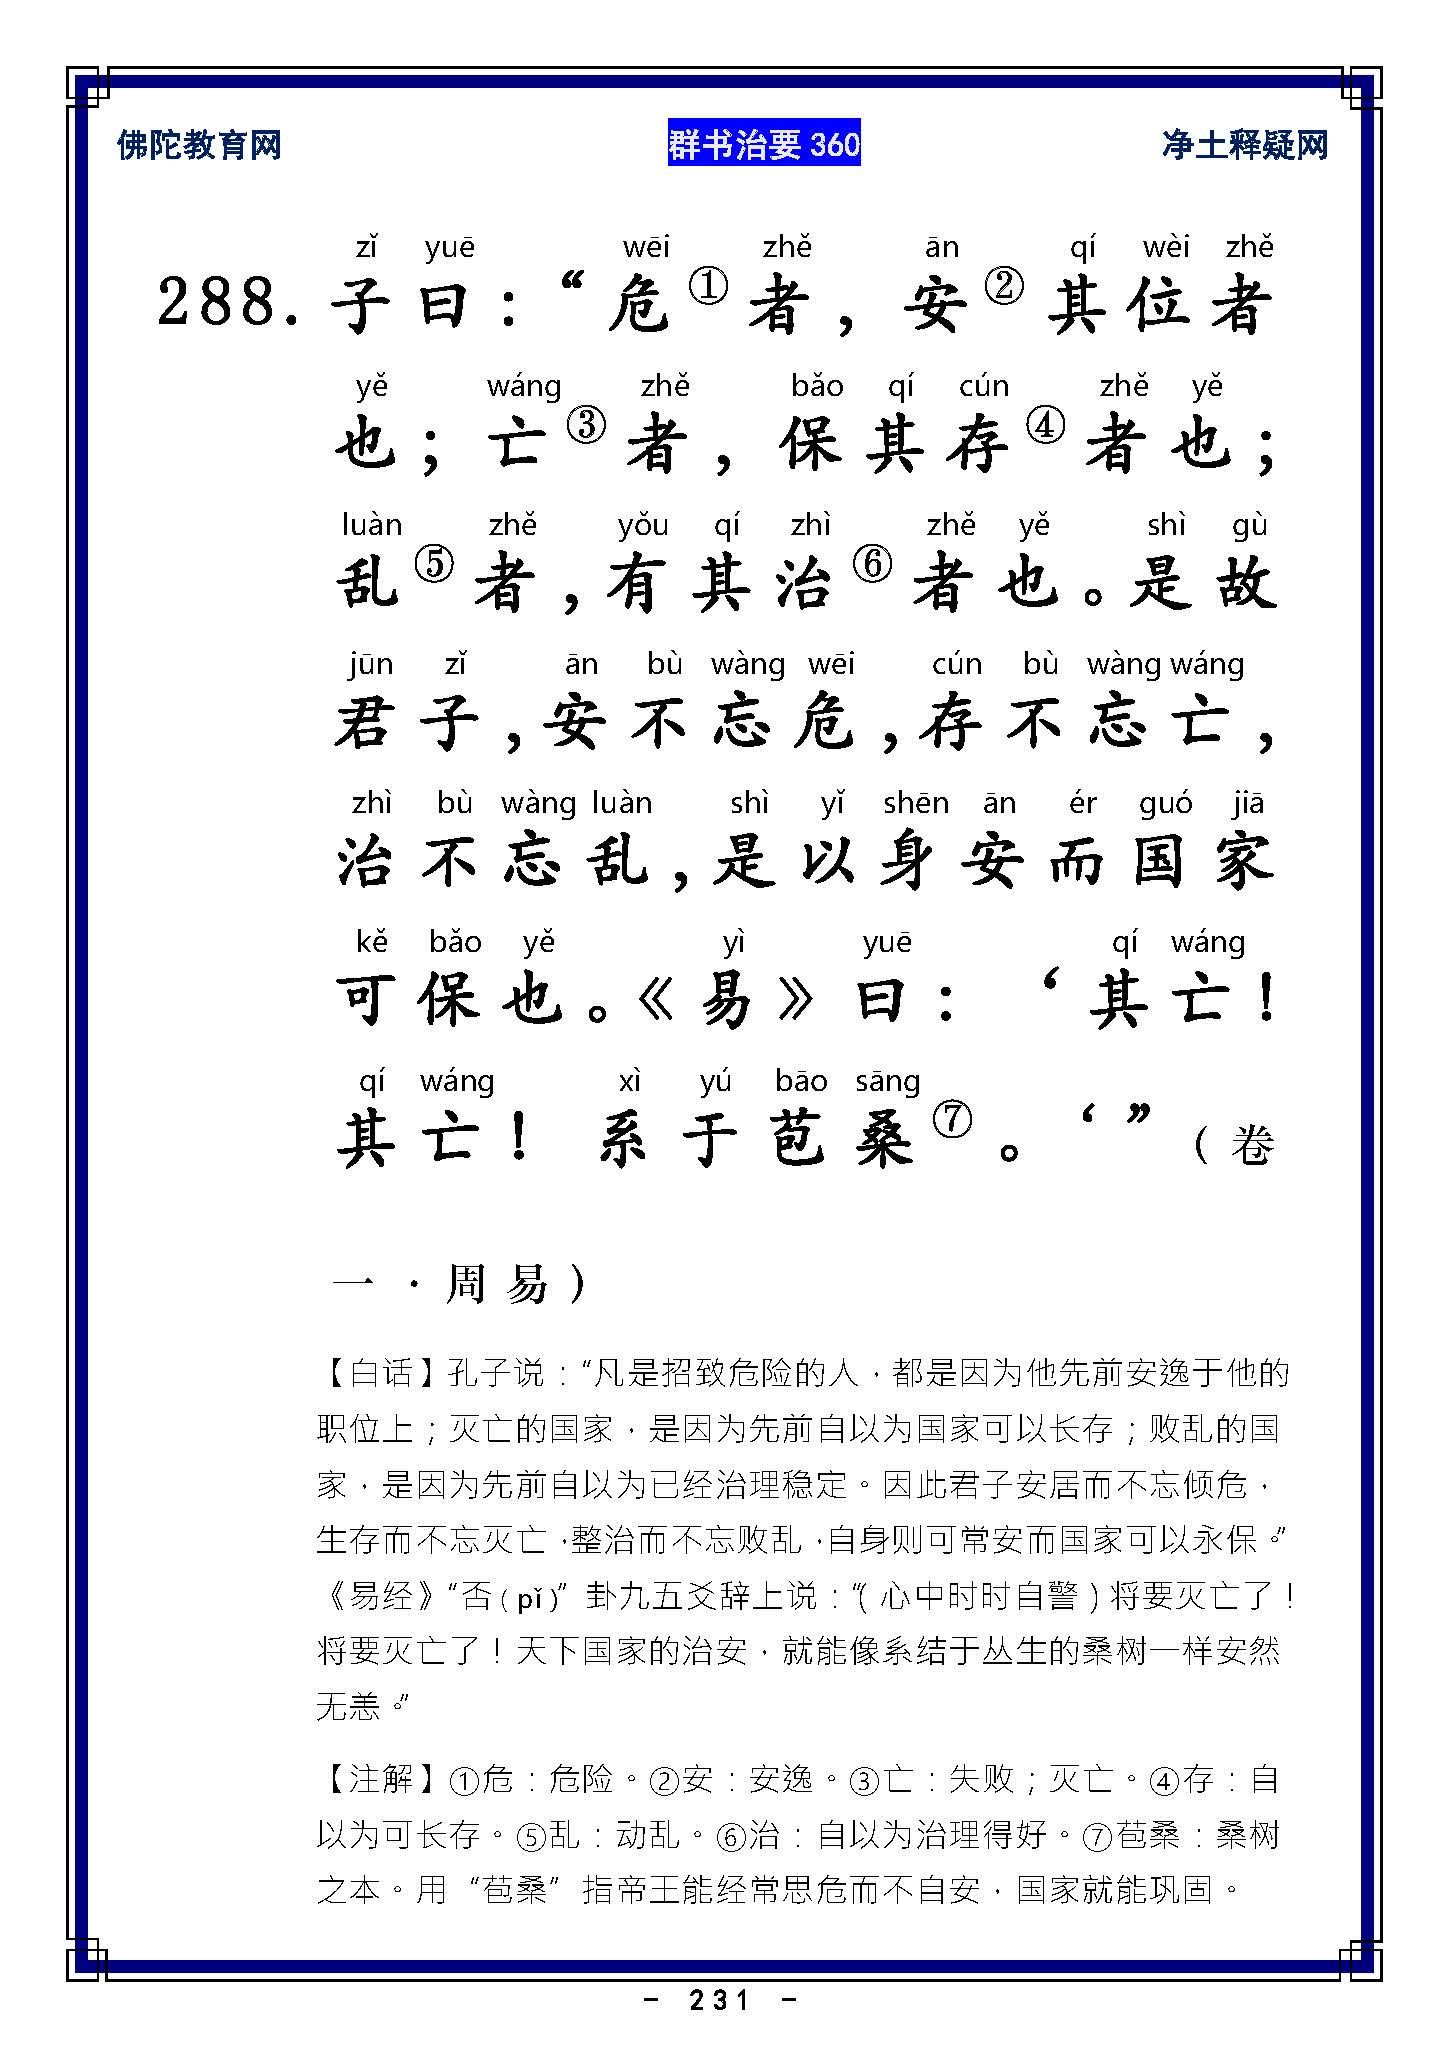 佛陀教育网 群书治要 360 净土释疑网
zǐ yuē wēi zhě ān qí wèi zhě
288. 子曰：“危①者，安②其位者
yě wáng zhě bǎo qí cún zhě yě
也；亡③者，保其存④者也；
luàn zhě yǒu qí zhì zhě yě shì gù
乱⑤者，有其治⑥者也。是故
jūn zǐ ān bù wàng wēi cún bù wàng wáng
君子，安不忘危，存不忘亡，
zhì bù wàng luàn shì yǐ shēn ān ér guó jiā
治不忘乱，是以身安而国家
kě bǎo yě yì yuē qí wáng
可保也。《易》曰：‘其亡！
qí wáng xì yú bāo sāng
其亡！系于苞桑⑦。‘”（卷
一·周易）
【白话】孔子说：“凡是招致危险的人，都是因为他先前安逸于他的
职位上；灭亡的国家，是因为先前自以为国家可以长存；败乱的国
家，是因为先前自以为已经治理稳定。因此君子安居而不忘倾危，
生存而不忘灭亡，整治而不忘败乱，自身则可常安而国家可以永保。”
《易经》“否（pǐ）”卦九五爻辞上说：“（心中时时自警）将要灭亡了！
将要灭亡了！天下国家的治安，就能像系结于丛生的桑树一样安然
无恙。”
【注解】①危：危险。②安：安逸。③亡：失败；灭亡。④存：自
以为可长存。⑤乱：动乱。⑥治：自以为治理得好。⑦苞桑：桑树
之本。用“苞桑”指帝王能经常思危而不自安，国家就能巩固。
- 231 -